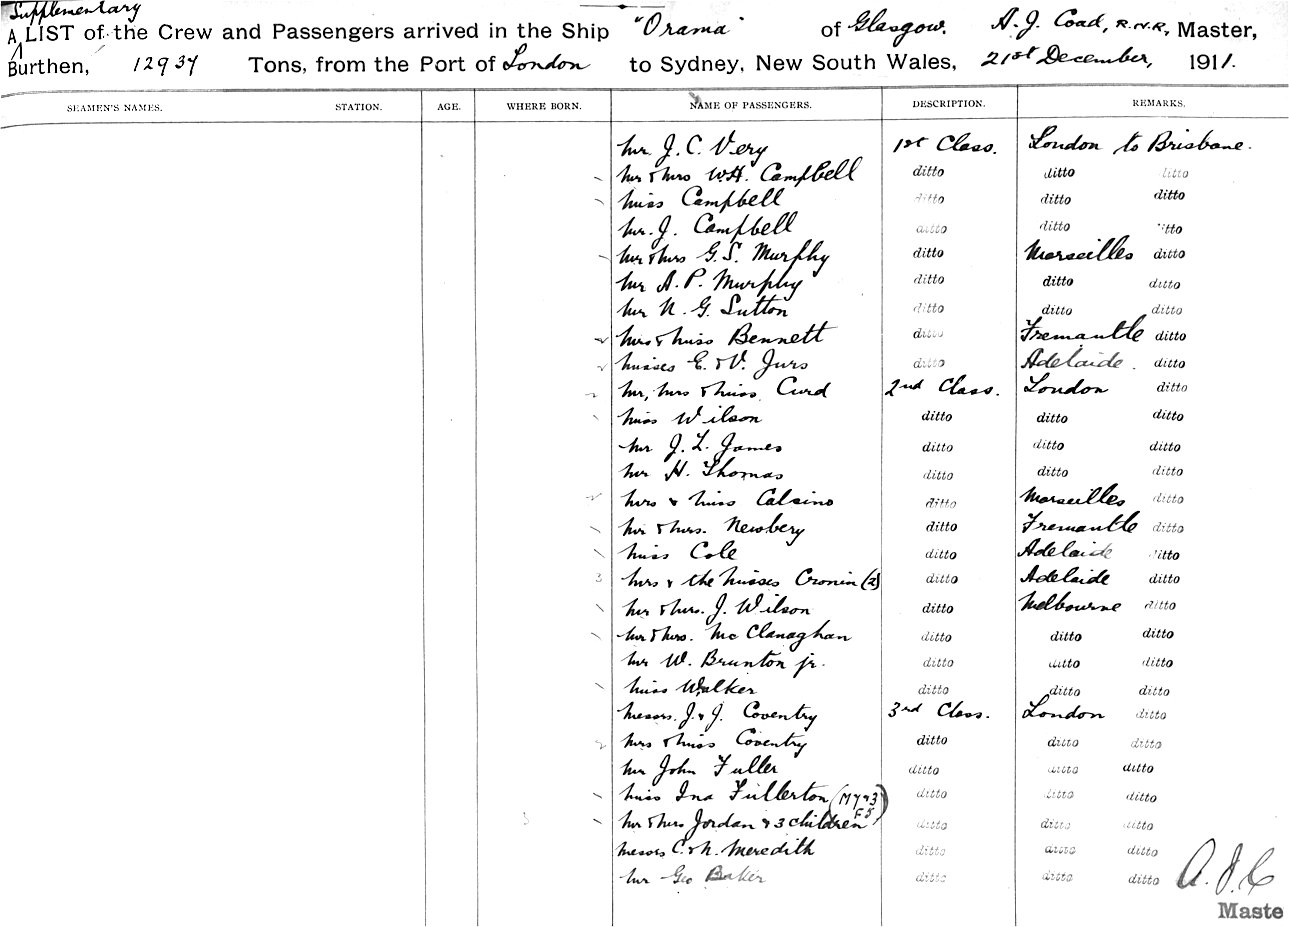 Supplementary
A LIST of the Crew and Passengers arrived in the Ship "Orama" of Glasgow. A. J. Coad, R.N.R, Master,
Burthen, 12937 Tons, from the Port of London to Sydney, New South Wales, 21st December, 1911.
SEAMEN'S NAMES. STATION. AGE. WHERE BORN. NAME OF PASSENGERS. DESCRIPTION. REMARKS.
Mr. J. C. Very 1st Class. London to Brisbane.
Mr & Mrs W.H. Campbell ditto ditto ditto
Miss Campbell ditto ditto ditto
Mr. J. Campbell ditto ditto ditto
Mr & Mrs G. S. Murphy ditto Marseilles ditto
Mr A. P. Murphy ditto ditto ditto
Mr N. G. Sutton ditto ditto ditto
Mrs & Miss Bennett ditto Fremantle ditto
Misses E. & V. Jurs ditto Adelaide. ditto
Mr, Mrs & Miss Curd 2nd Class. London ditto
Miss Wilson ditto ditto ditto
Mr J. L. James ditto ditto ditto
Mr H. Thomas ditto ditto ditto
Mrs & Miss Calsino ditto Marseilles ditto
Mr & Mrs. Newbery ditto Fremantle ditto
Miss Cole ditto Adelaide ditto
3 Mrs & the Misses Cronin (2) ditto Adelaide ditto
Mr & Mrs. J. Wilson ditto Melbourne ditto
Mr & Mrs. McClanaghan ditto ditto ditto
Mr W. Brunton jr. ditto ditto ditto
Miss Walker ditto ditto ditto
Messrs. J. & J. Coventry 3rd Class. London ditto
2 Mrs & Miss Coventry ditto ditto ditto
Mr John Fuller ditto ditto ditto
Miss Ina Fullerton ditto ditto ditto
3 Mr & Mrs Jordan & 3 children (M 7 & 3 F 5) ditto ditto ditto
Messrs C. & N. Meredith ditto ditto ditto
Mr Geo Baker ditto ditto ditto
A. J. C
Maste